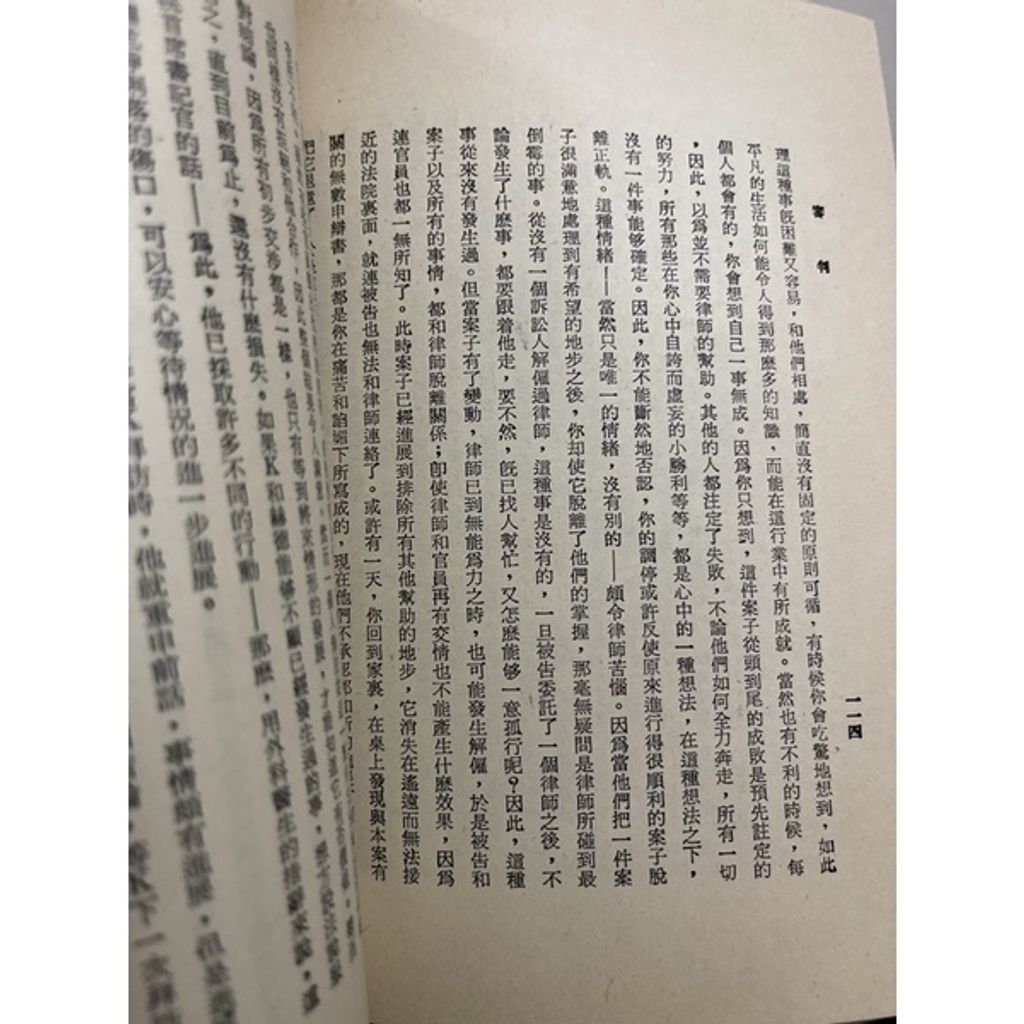 審判
一一四
理這種事既困難又容易，和他們相處，簡直沒有固定的原則可循，有時候你會吃驚地想到，如此
平凡的生活如何能令人得到那麽多的知識，而能在這行業中有所成就。當然也有不利的時候，每
個人都會有的，你會想到自己一事無成。因爲你只想到，這件案子從頭到尾的成敗是預先註定的
，因此，以爲並不需要律師的幫助。其他的人都注定了失敗，不論他們如何全力奔走，所有一切
的努力，所有那些在你心中自誇而虛妄的小勝利等等，都是心中的一種想法，在這種想法之下，
沒有一件事能夠確定。因此，你不能斷然地否認，你的調停或許反使原來進行得很順利的案子脫
離正軌。這種情緒——當然只是唯一的情緒，沒有別的——頗令律師苦惱。因爲當他們把一件案
子很滿意地處理到有希望的地步之後，你却使它脫離了他們的掌握，那毫無疑問是律師所碰到最
倒霉的事。從沒有一個訴訟人解僱過律師，這種事是沒有的，一旦被告委託了一個律師之後，不
論發生了什麽事，都要跟着他走，要不然，既已找人幫忙，又怎麽能夠一意孤行呢？因此，這種
事從來沒有發生過。但當案子有了變動，律師已到無能爲力之時，也可能發生解僱，於是被告和
案子以及所有的事情，都和律師脫離關係；卽使律師和官員再有交情也不能產生什麽效果，因爲
連官員也都一無所知了。此時案子已經進展到排除所有其他幫助的地步，它消失在遙遠而無法接
近的法院裏面，就連被告也無法和律師連絡了。或許有一天，你回到家裏，在桌上發現與本案有
關的無數申辯書，那都是你在痛苦和諂媚下所寫成的，現在他們不承認
因爲所有初步交涉都是一樣，也只有等到將來情形的發展
直到目前爲止，還沒有什麽損失。如果K和赫德能夠不顧已經發生過的事
書記官的話——爲此，他已採取許多不同的行動——那麽，用外科醫生的
的傷口，可以安心等待情況的進一步進展。
時，他就重申前話，事情頗有進展，但是
下一次